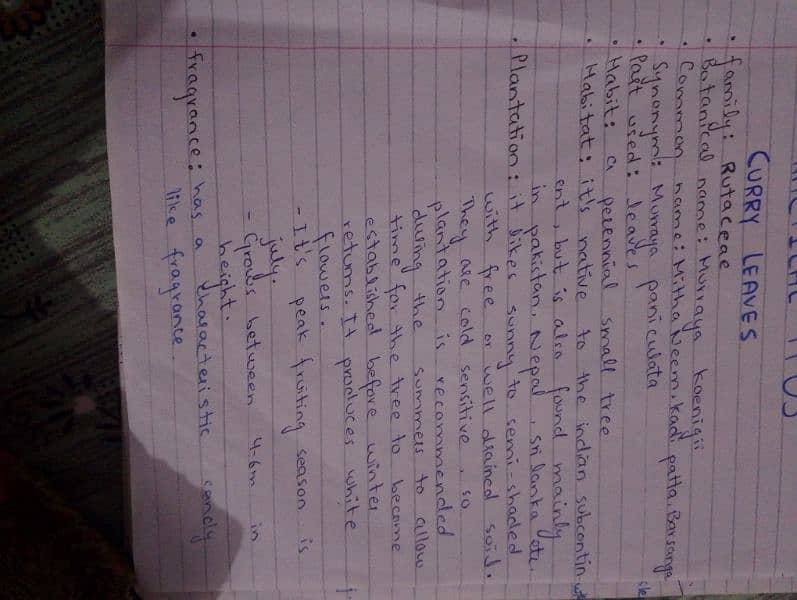 PRACTICAL NO5
CURRY LEAVES
• family: Rutaceae
• Botanical name: Murraya koenigii
• Common name: Mitha Neem, Kadi patta, Barsanga
• Synonym: Murraya paniculata
• Part used: leaves
• Habit: a perennial small tree
• Habitat: it's native to the indian subcontin
ent, but is also found mainly
in pakistan, Nepal, sri lanka etc.
• Plantation: it likes sunny to semi-shaded
with free or well drained soil.
They are cold sensitive, so
plantation is recommended
during the summers to allow
time for the tree to become
established before winter
returns. It produces white
flowers.
- It's peak fruiting season is
july.
- Grows between 4-6m in
height.
• fragrance: has a characteristic candy
like fragrance